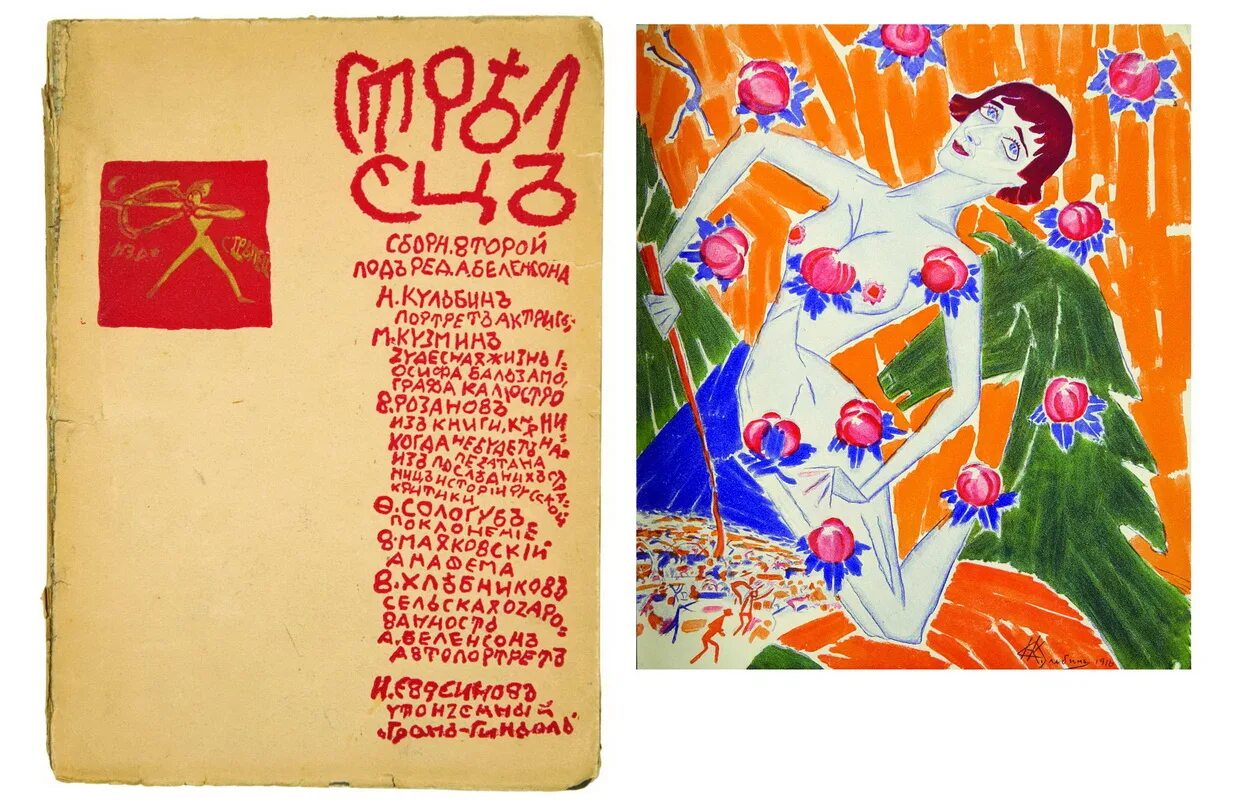 СТРѢЛ
ЕЦЪ
СБОРН. ВТОРОЙ
ПОДЪ РЕД. А БЕЛЕНСОНА
Н. КУЛЬБИНЪ
ПОРТРЕТЪ АКТРИСЫ
М. КУЗМИНЪ
ЧУДЕСНАЯ ЖИЗНЬ I-
ОСИФА БАЛЬЗАМО,
ГРАФА КАЛІОСТРО
В. РОЗАНОВЪ
ИЗЪ КНИГИ, К-РАЯ НИ
КОГДА НЕ БУДЕТЪ НА-
ПЕЧАТАНА
ИЗЪ ПОСЛѢДНИХЪ СТРА
НИЦЪ ИСТОРІИ РУССКОЙ
КРИТИКИ
Ѳ. СОЛОГУБЪ
ПОКЛОНЕНІЕ
В. МАЯКОВСКІЙ
АНАФЕМА
В. ХЛѢБНИКОВЪ
СЕЛЬСКАЯ ОЧАРО-
ВАННОСТЬ
А. БЕЛЕНСОНЪ
АВТОПОРТРЕТЪ
Н. ЕВРЕИНОВЪ
УТОНЧЕННЫЙ
„ГРАНЪ-ГИНЬОЛЬ"
ИЗД-
СТРѢЛЕЦЪ
НКульбинъ 1916